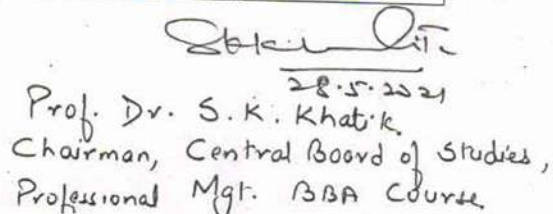 28.5.2021
Prof. Dr. S.K. Khatik,
Chairman, Central Board of Studies,
Professional Mgt. BBA Course